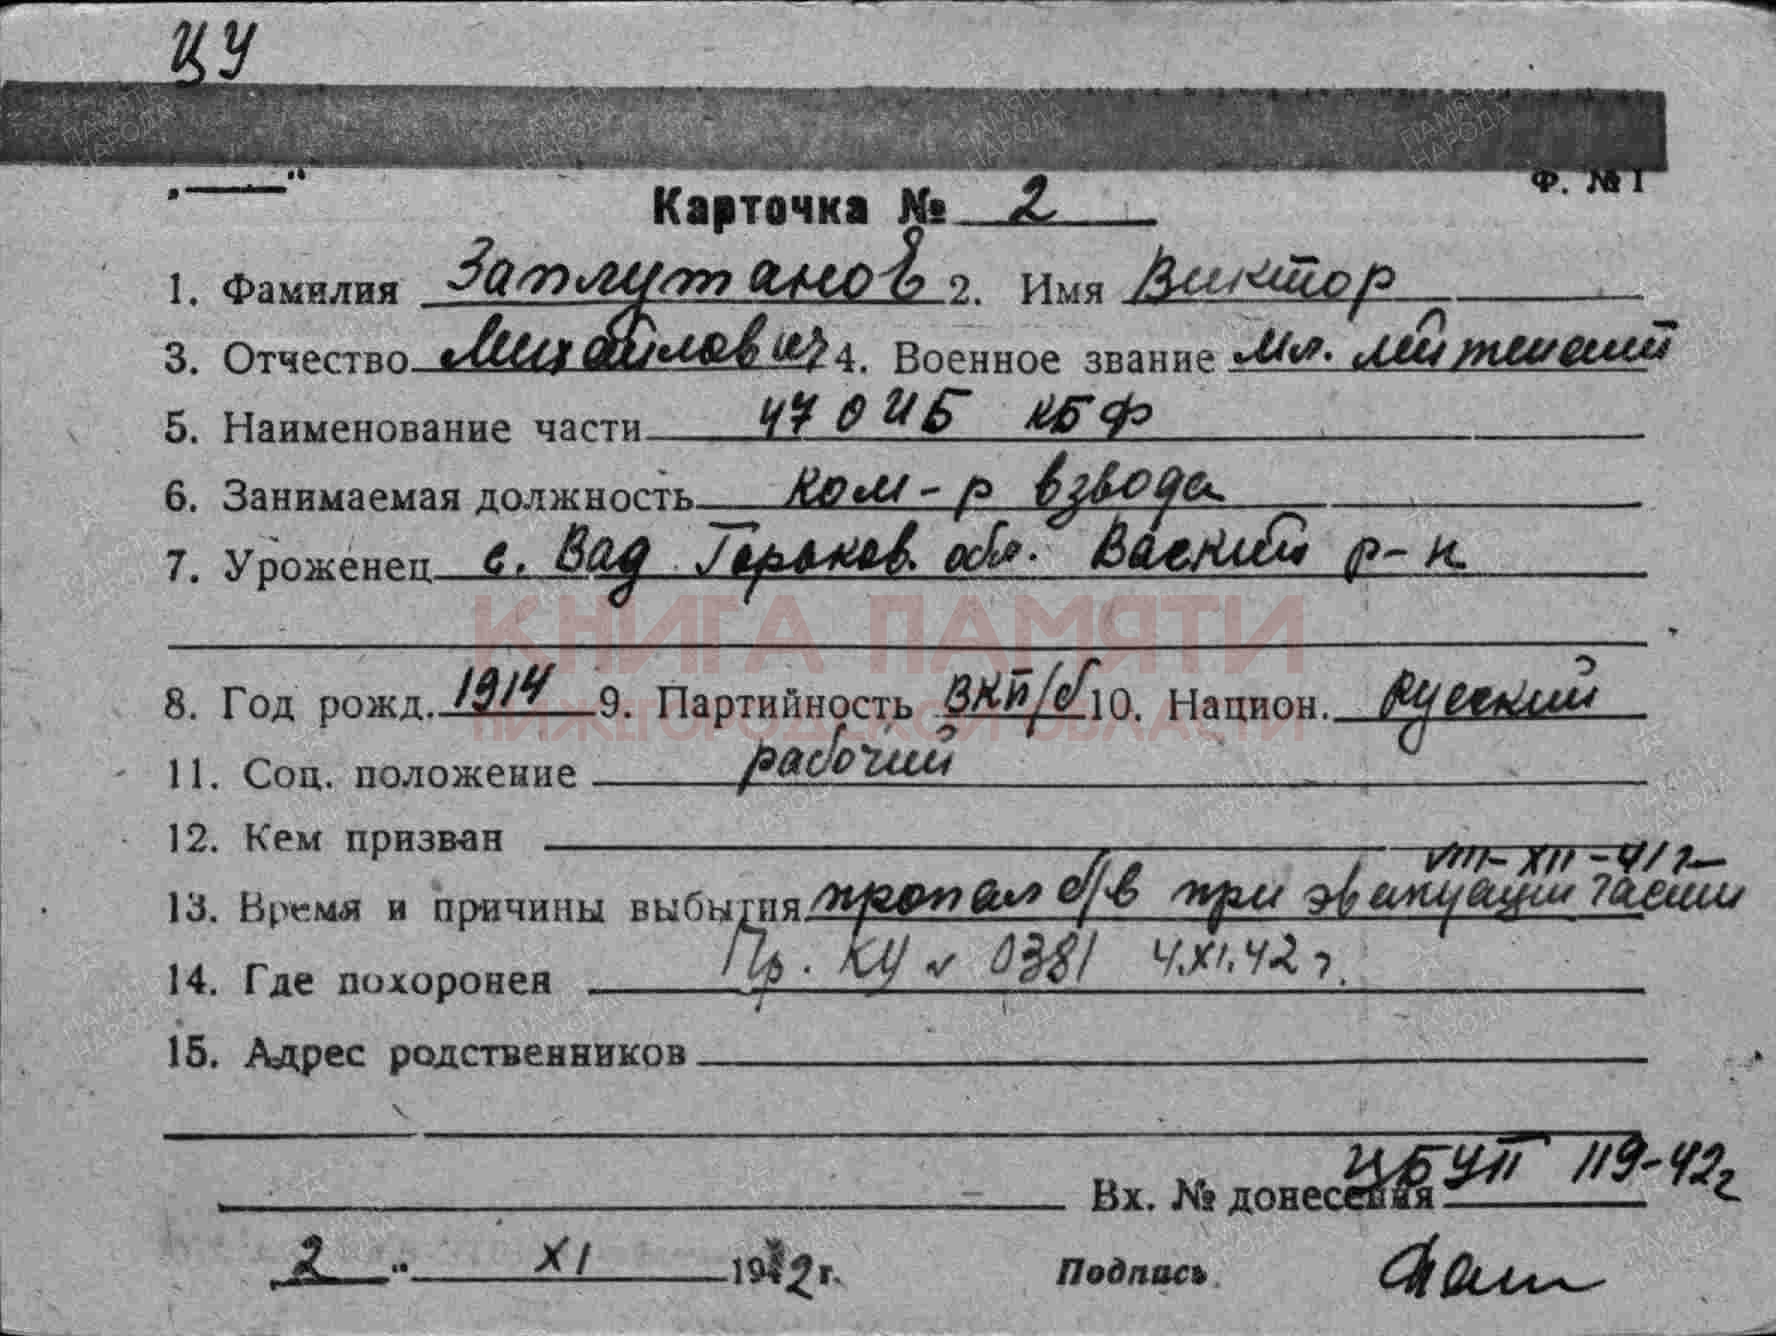 ЦУ
„ “
Ф. № 1
Карточка № 2
1. Фамилия Заплутанов 2. Имя Виктор
3. Отчество Михайлович 4. Военное звание Мл. лейтенант
5. Наименование части 47 ОИБ КБФ
6. Занимаемая должность ком-р взвода
7. Уроженец с. Вад Горьков. обл. Ваский р-н
КНИГА ПАМЯТИ
8. Год рожд. 1914 9. Партийность ВКП/б 10. Национ. русский
НИЖЕГОРОДСКОЙ ОБЛАСТИ
11. Соц. положение рабочий
12. Кем призван
VIII-XII-41 г
13. Время и причины выбытия пропал б/в при эвакуации части
Пр. КУ № 0381 4.XI.42 г.
14. Где похоронен
15. Адрес родственников
Вх. № донесения ЦБУП 119-42г
2 “ XI 1942 г. Подпись
ПАМЯТЬ НАРОДА